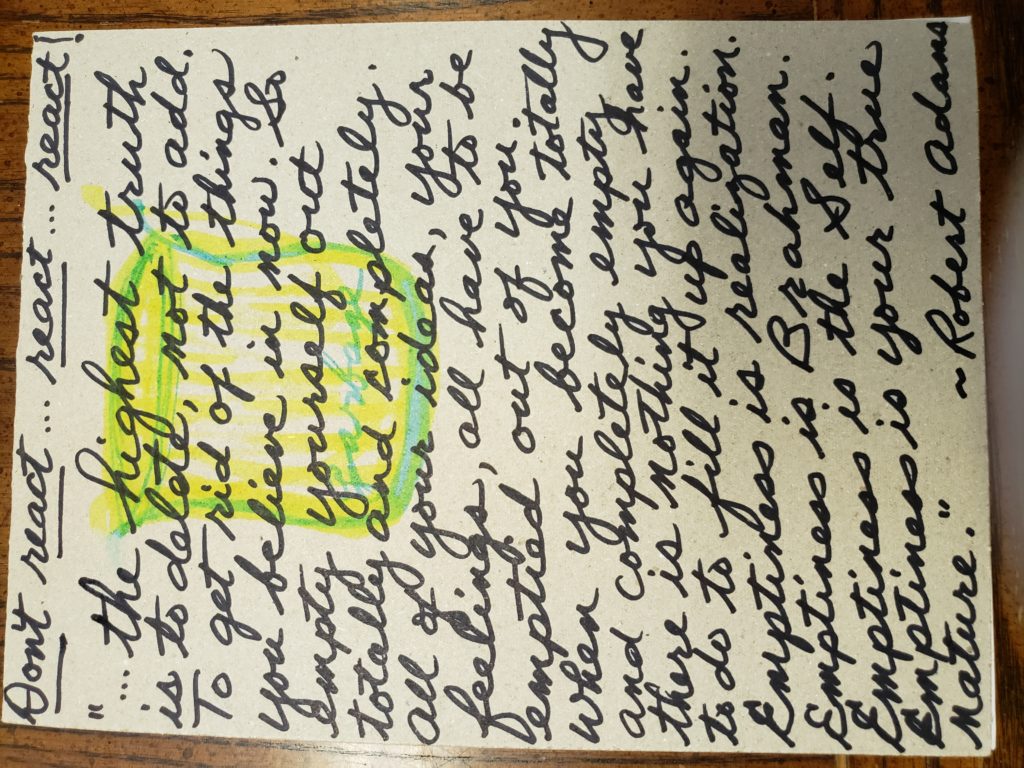 Don't react... react... react... react!
"... the highest truth
is to delete, not to add.
To get rid of the things
you believe in now. So
empty yourself out
totally and completely.
All of your ideas, your
feelings, all have to be
emptied out of you.
When you become totally
and completely empty
there is nothing you have
to do to fill it up again.
Emptiness is realization.
Emptiness is Brahman.
Emptiness is the Self.
Emptiness is your true
Nature." ~ Robert Adams
garbage